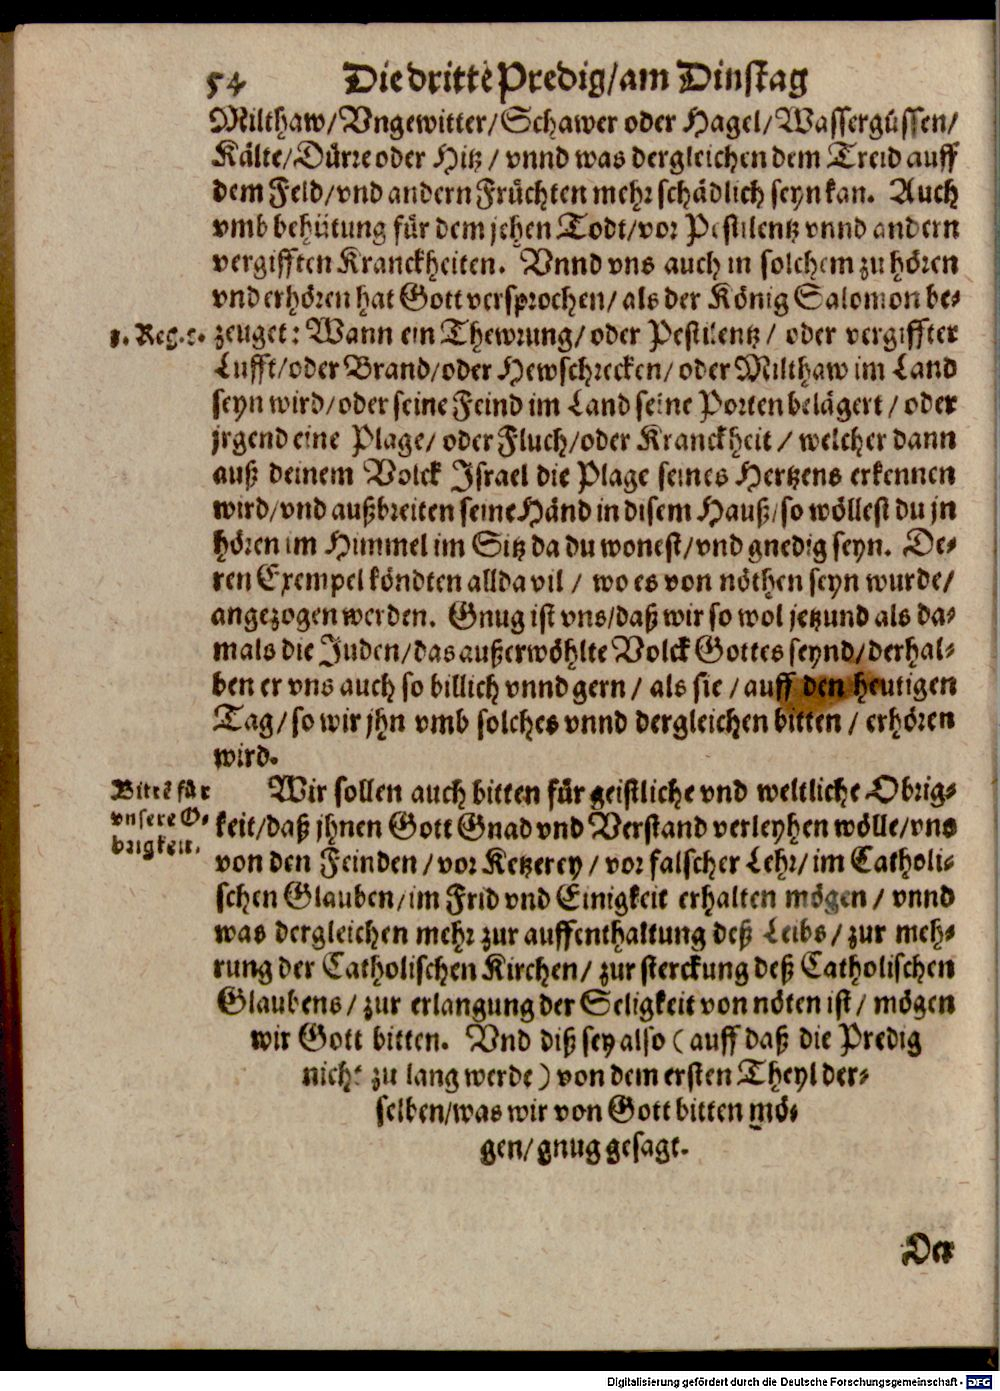 54 Die dritte Predig/am Dinstag
Milthaw/Vngewitter/Schawer oder Hagel/Wassergüssen/
Kälte/Dürre oder Hitz/ vnnd was dergleichen dem Treid auff
dem Feld/vnd andern Früchten mehr schädlich seyn kan. Auch
vmb behütung für dem jehen Todt/vor Pestilentz vnnd andern
vergifften Kranckheiten. Vnnd vns auch in solchem zu hören
vnd erhören hat Gott versprochen/ als der König Salomon be-
3. Reg. 8. zeuget: Wann ein Thewrung/ oder Pestilentz/ oder vergiffter
Lufft/oder Brand/oder Hewschrecken/ oder Milthaw im Land
seyn wird/oder seine Feind im Land seine Porten belägert/ oder
jrgend eine Plage/ oder Fluch/oder Kranckheit/ welcher dann
auß deinem Volck Israel die Plage seines Hertzens erkennen
wird/vnd außbreiten seine Händ in disem Hauß/so wöllest du jn
hören im Himmel im Sitz da du wonest/vnd gnedig seyn. De-
ren Exempel köndten allda vil/ wo es von nöthen seyn wurde/
angezogen werden. Gnug ist vns/daß wir so wol jetzund als da-
mals die Juden/das außerwöhlte Volck Gottes seynd/derhal-
ben er vns auch so billich vnnd gern/ als sie/auff den heutigen
Tag/so wir jhn vmb solches vnnd dergleichen bitten/ erhören
wird.
Bitte für
vnsere O-
brigkeit.
Wir sollen auch bitten für geistliche vnd weltliche Obrig-
keit/daß jhnen Gott Gnad vnd Verstand verleyhen wölle/vns
von den Feinden/vor Ketzerey/ vor falscher Lehr/im Catholi-
schen Glauben/im Frid vnd Einigkeit erhalten mögen/ vnnd
was dergleichen mehr zur auffenthaltung deß Leibs/ zur meh-
rung der Catholischen Kirchen/ zur sterckung deß Catholischen
Glaubens/ zur erlangung der Seligkeit von nöten ist/ mögen
wir Gott bitten. Vnd diß sey also (auff daß die Predig
nicht zu lang werde) von dem ersten Theyl der-
selben/was wir von Gott bitten mö-
gen/gnug gesagt.
Der
Digitalisierung gefördert durch die Deutsche Forschungsgemeinschaft - DFG